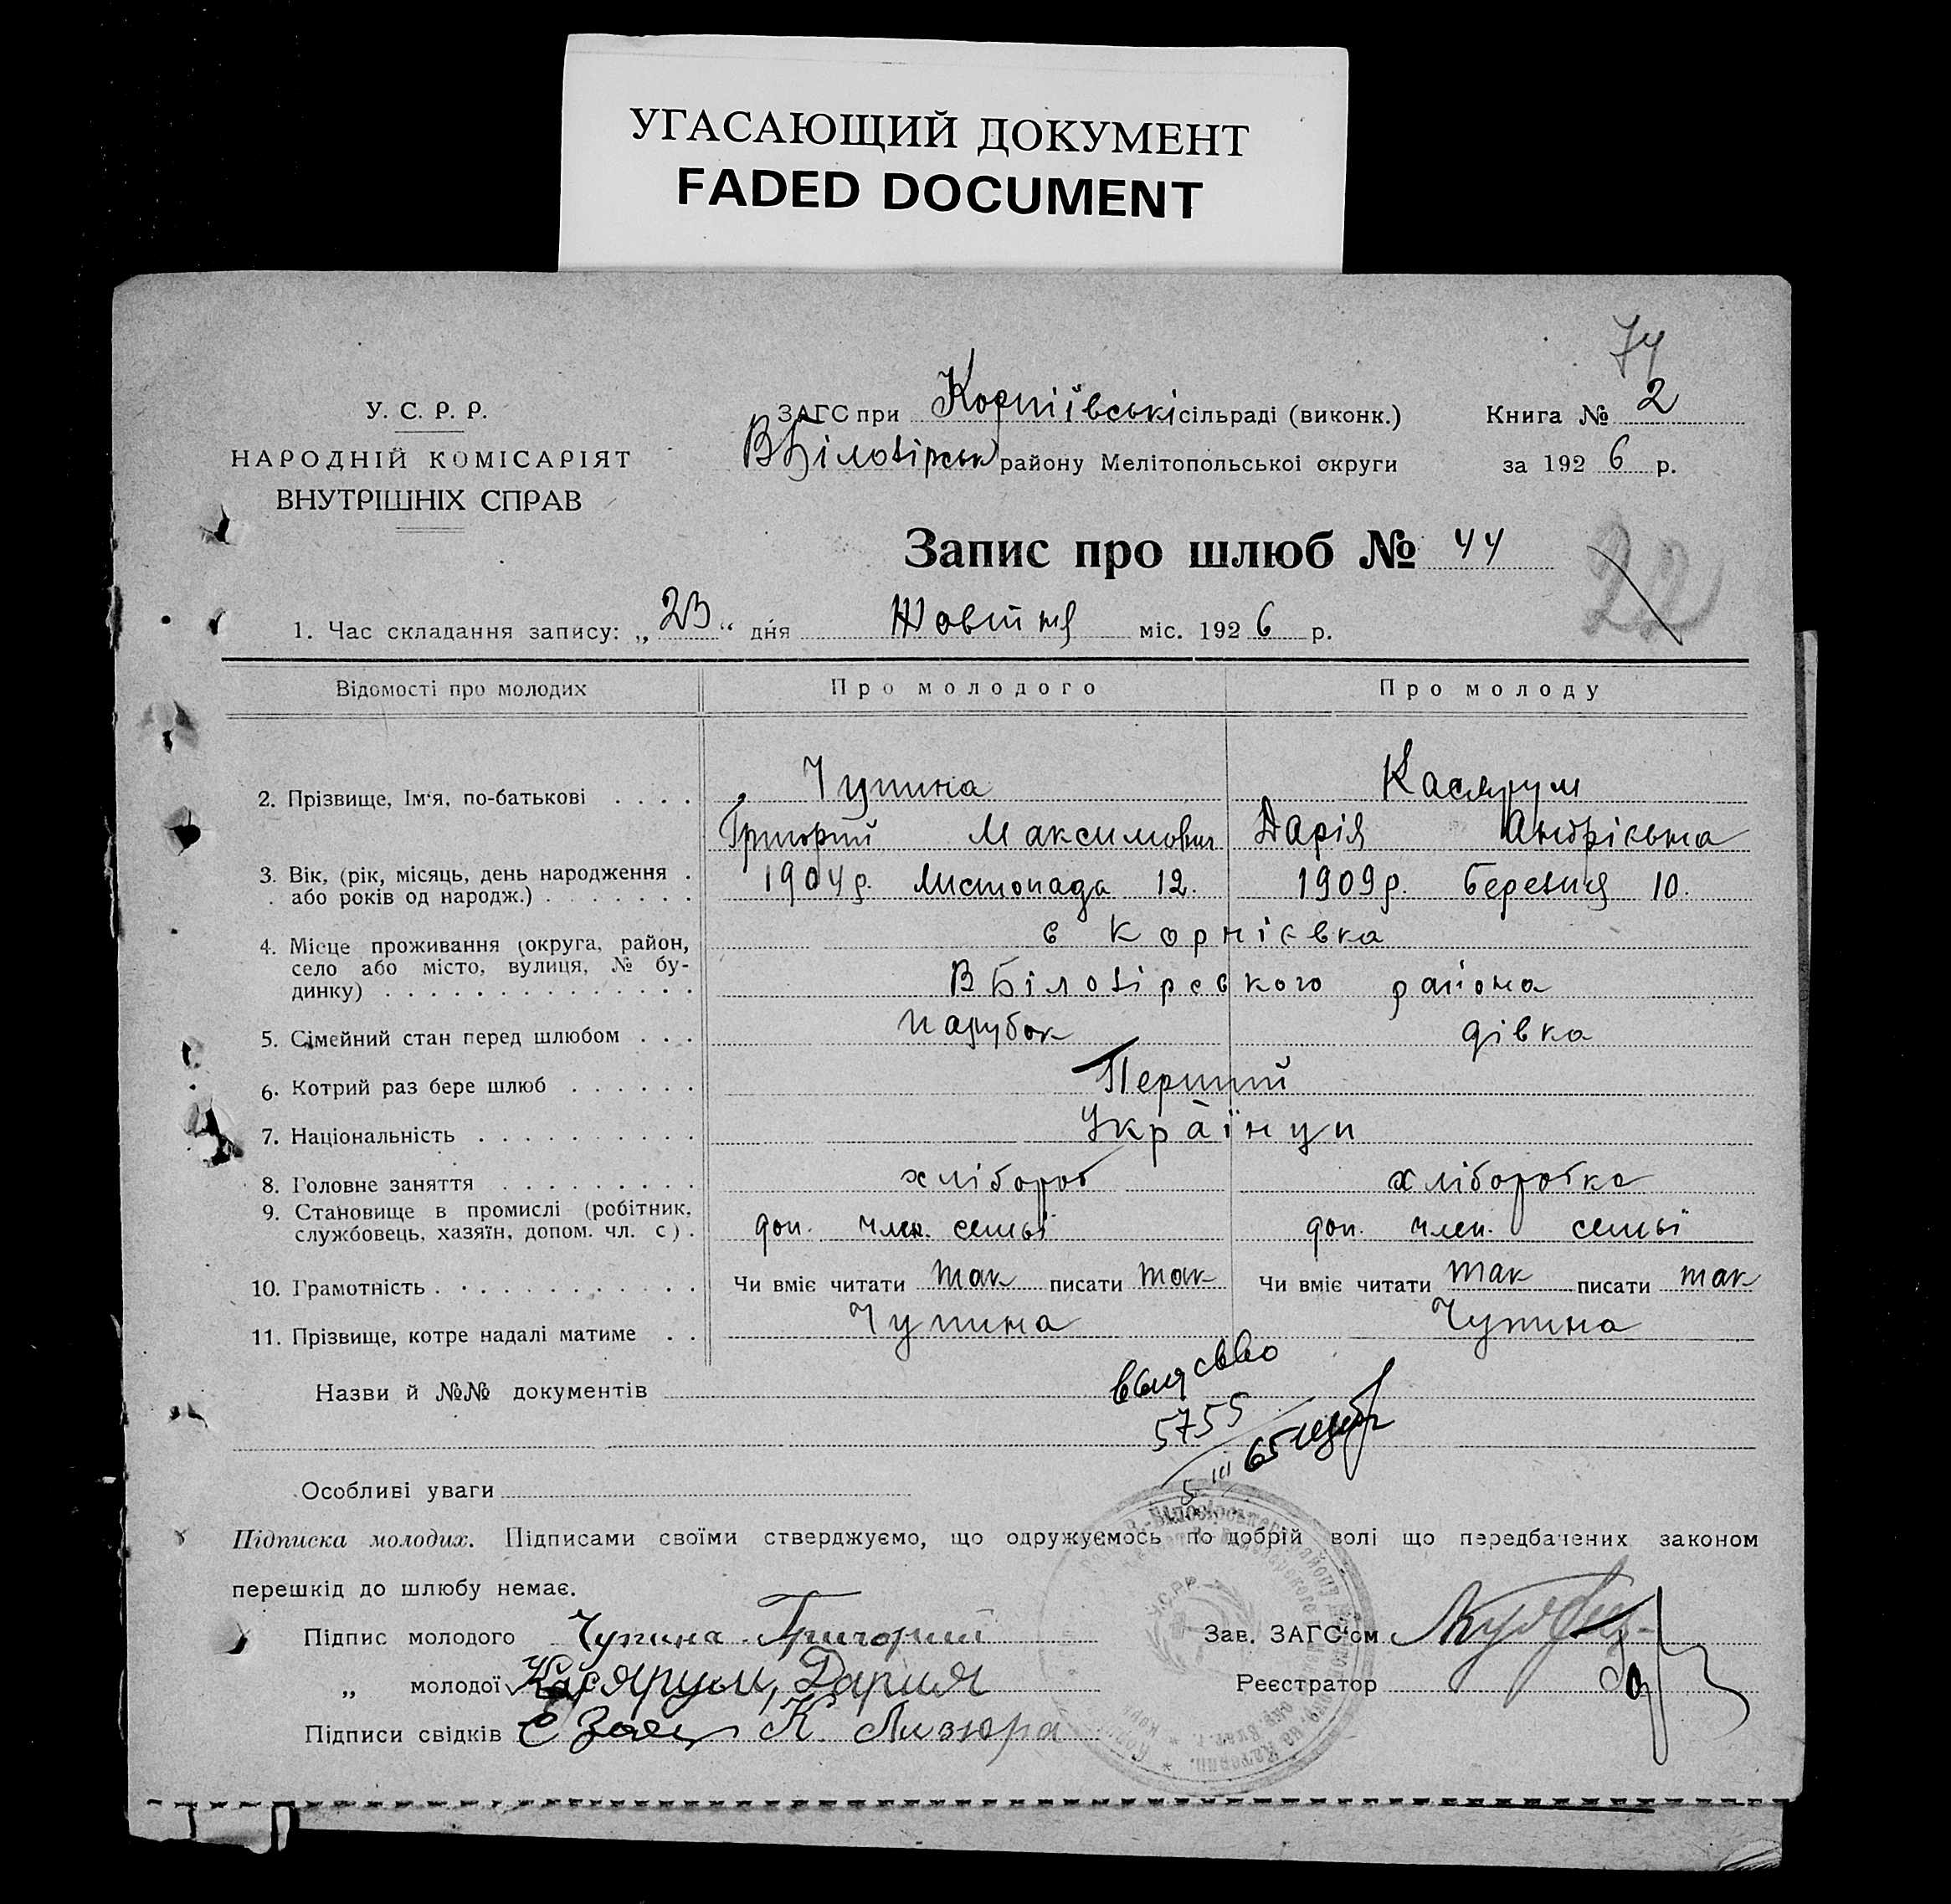 УГАСАЮЩИЙ ДОКУМЕНТ
FADED DOCUMENT
74
У. С. Р. Р.
НАРОДНІЙ КОМІСАРІЯТ
ВНУТРІШНІХ СПРАВ
ЗАГС при Корніївські сільраді (виконк.)
ВБілозірськ району Мелітопольської округи
Книга № 2
за 1926 р.
Запис про шлюб № 44
22
1. Час складання запису: „23“ дня Жовтня міс. 1926 р.
Відомості про молодих Про молодого Про молоду
2. Прізвище, Ім‘я, по-батькові . . . . Чупина Касярум
Григорій Максимович Дарія Андріівна
3. Вік, (рік, місяць, день народження . або років од народж.) . . . . . . . 1904р. Листопада 12. 1909р. Березня 10.
4. Місце проживання (округа, район, село або місто, вулиця, № будинку) . . . . . . . . . . . . . . с Корнієвка
ВБілозірського района
5. Сімейний стан перед шлюбом . . . парубок дівка
6. Котрий раз бере шлюб . . . . . . Перший
7. Національність . . . . . . . . . . Українци
8. Головне заняття . . . . . . . . . хлібороб хліборобка
9. Становище в промислі (робітник, службовець, хазяїн, допом. чл. с) . доп. член. семьї доп. член. семьї
10. Грамотність . . . . . . . . . . . . Чи вміє читати так писати так Чи вміє читати так писати так
11. Прізвище, котре надалі матиме . . Чупина Чупина
Назви й №№ документів
5755
5 III 65
Особливі уваги
Підписка молодих. Підписами своїми стверджуємо, що одружуємось по добрій волі що передбачених законом
перешкід до шлюбу немає.
Підпис молодого Чупина Григорий
Зав. ЗАГС‘ом
„ молодої Касярум, Дария
Реєстратор
Підписи свідків Е Заяц К. Лизюра
У.С.Р.Р.